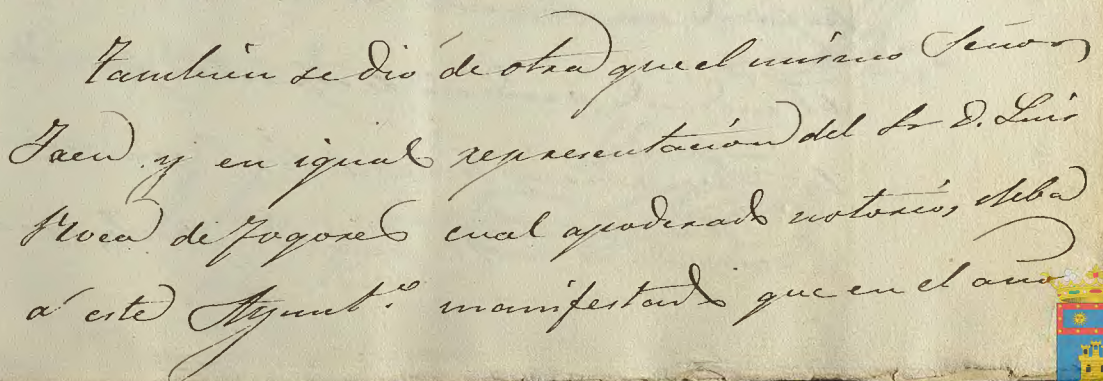 Tambien se dió de otra que el mismo Señor
Jaen y en igual representacion del Sr D. Luis
Roca de Togores cual apoderado notorio, eleba
á este Ayunt.º manifestando que en el año